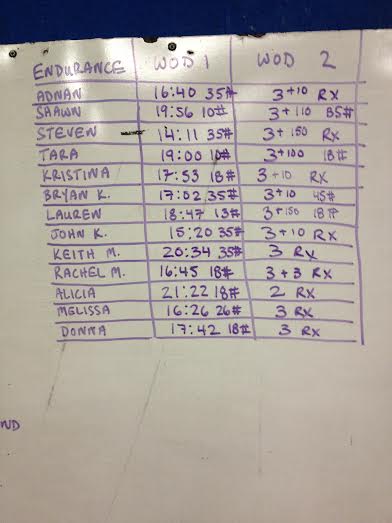 ENDURANCE WOD 1 WOD 2
ADNAN 16:40 35# 3+10 RX
SHAWN 19:56 10# 3+110 85#
STEVEN 14:11 35# 3+150 RX
TARA 19:00 10# 3+100 18#
KRISTINA 17:53 18# 3+10 RX
BRYAN K. 17:02 35# 3+10 45#
LAUREN 18:47 13# 3+150 18#
JOHN K. 15:20 35# 3+10 RX
KEITH M. 20:34 35# 3 RX
RACHEL M. 16:45 18# 3+3 RX
ALICIA 21:22 18# 2 RX
MELISSA 16:26 26# 3 RX
DONNA 17:42 18# 3 RX
ND